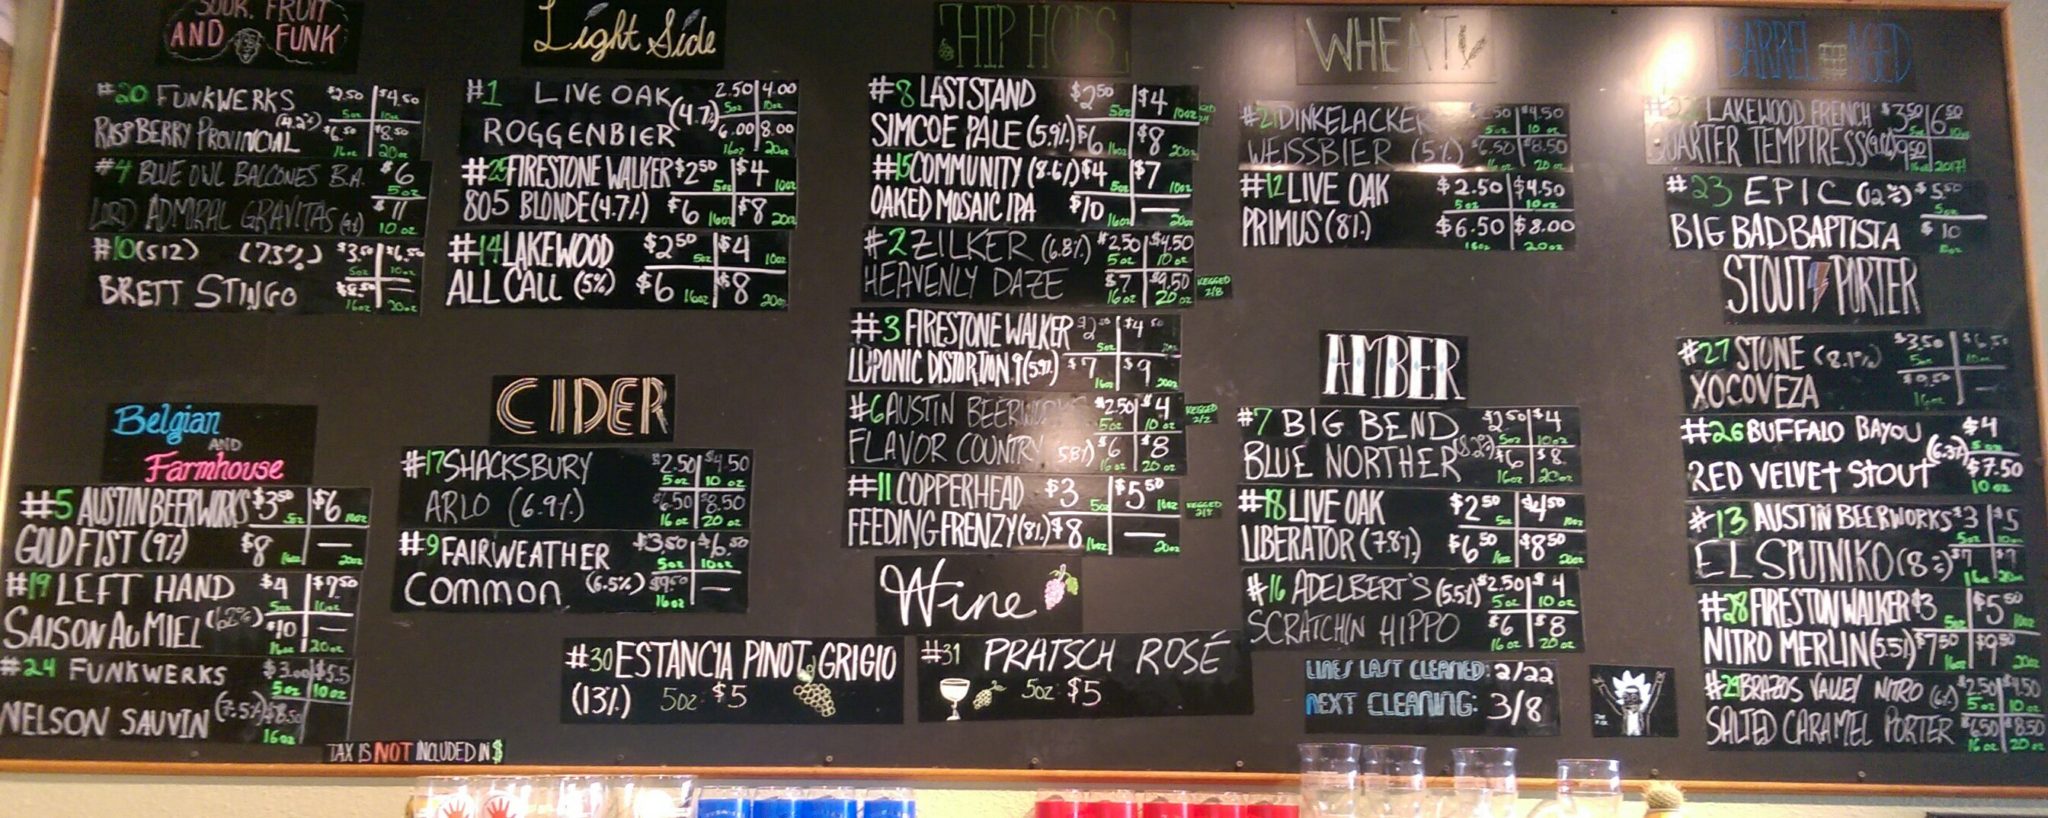 SOUR, FRUIT
AND FUNK
#20 FUNKWERKS $2.50 5oz $4.50 10oz
RASPBERRY PROVINCIAL (4.2%) $6.50 16oz $8.50 20oz
#4 BLUE OWL BALCONES B.A. $6 5oz
LORD ADMIRAL GRAVITAS $11 10oz
#10 (512) (7.3%) $3.50 5oz $6.50 10oz
BRETT STINGO 16oz — 20oz
Belgian
AND
Farmhouse
#5 AUSTIN BEERWORKS $3.50 5oz $6 10oz
GOLD FIST (9%) $8 16oz — 20oz
#19 LEFT HAND $4 5oz $7.50 10oz
SAISON AU MIEL $10 16oz — 20oz
#24 FUNKWERKS $3.00 5oz $5.5 10oz
NELSON SAUVIN (7.5%) $8.50 16oz
TAX IS NOT INCLUDED IN $
Light Side
#1 LIVE OAK 2.50 5oz 4.00 10oz
ROGGENBIER (4.7%) 6.00 16oz 8.00 20oz
#25 FIRESTONE WALKER $2.50 5oz $4 10oz
805 BLONDE (4.7%) $6 16oz $8 20oz
#14 LAKEWOOD $2.50 5oz $4 10oz
ALL CALL (5%) $6 16oz $8 20oz
CIDER
#17 SHACKSBURY $2.50 5oz $4.50 10oz
ARLO (6.9%) $6.50 16oz $8.50 20oz
#9 FAIRWEATHER $3.50 5oz $6.50 10oz
COMMON (6.5%) $9.50 16oz —
HIP HOPS
#8 LAST STAND $2.50 5oz $4 10oz
SIMCOE PALE (5.9%) $6 16oz $8 20oz
#15 COMMUNITY (8.6%) $4 5oz $7 10oz
OAKED MOSAIC IPA $10 16oz — 20oz
#2 ZILKER (6.8%) $2.50 5oz $4.50 10oz
HEAVENLY DAZE $7 16oz $9.50 20oz
KEGGED 2/8
#3 FIRESTONE WALKER 5oz $4.50
LUPONIC DISTORTION 9 (5.9%) $7 16oz $9 20oz
#6 AUSTIN BEERWORKS $2.50 5oz $4 10oz
FLAVOR COUNTRY $6 16oz $8 20oz
KEGGED 2/2
#11 COPPERHEAD $3 5oz $5.50 10oz
FEEDING FRENZY (8%) $8 16oz — 20oz
KEGGED
Wine
#30 ESTANCIA PINOT GRIGIO
(13%) 5oz: $5
#31 PRATSCH ROSÉ
5oz: $5
WHEAT
#21 DINKELACKER 5oz $4.50 10oz
WEISSBIER (5%) $6.50 16oz $8.50 20oz
#12 LIVE OAK $2.50 5oz $4.50 10oz
PRIMUS (8%) $6.50 16oz $8.00 20oz
AMBER
#7 BIG BEND $2.50 5oz $4 10oz
BLUE NORTHER $6 16oz $8 20oz
#18 LIVE OAK $2.50 5oz $4.50 10oz
LIBERATOR (7.8%) $6.50 16oz $8.50 20oz
#16 ADELBERT'S (5.5%) $2.50 5oz $4 10oz
SCRATCHIN HIPPO $6 16oz $8 20oz
LINES LAST CLEANED: 2/22
NEXT CLEANING: 3/8
BARREL AGED
LAKEWOOD FRENCH $3.50 5oz 6.50
QUARTER TEMPTRESS 9.50 16oz 2017!
#23 EPIC (12%) $5.50 5oz
BIG BAD BAPTISTA $10
STOUT PORTER
#27 STONE (8.1%) $3.50 5oz $6.50 10oz
XOCOVEZA $9.50 16oz —
#26 BUFFALO BAYOU $4
RED VELVET STOUT $7.50 10oz
#13 AUSTIN BEERWORKS $3 5oz $5 10oz
EL SPUTNIKO $7 16oz $9 20oz
#28 FIRESTON WALKER $3 5oz $5.50 10oz
NITRO MERLIN (5.5%) $7.50 16oz $9.50 20oz
#29 BRAZOS VALLEY NITRO $2.50 5oz $4.50 10oz
SALTED CARAMEL PORTER $6.50 16oz $8.50 20oz